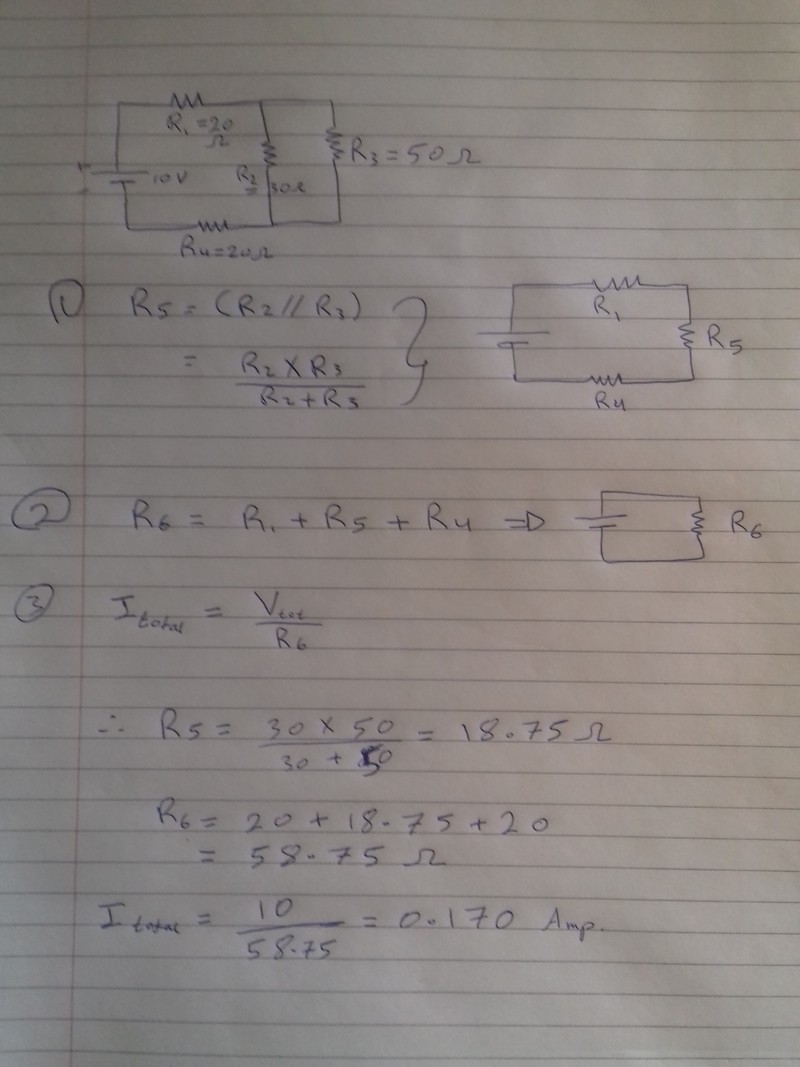 R1 = 20 Ω
R3 = 50 Ω
10V
R2 = 30Ω
R4 = 20Ω
① R5 = (R2 // R3)
= R2 × R3 / R2 + R3
R1
R5
R4
② R6 = R1 + R5 + R4 ⇒
R6
③ Itotal = Vtot / R6
∴ R5 = 30 × 50 / 30 + 50 = 18.75 Ω
R6 = 20 + 18.75 + 20
= 58.75 Ω
Itotal = 10 / 58.75 = 0.170 Amp.